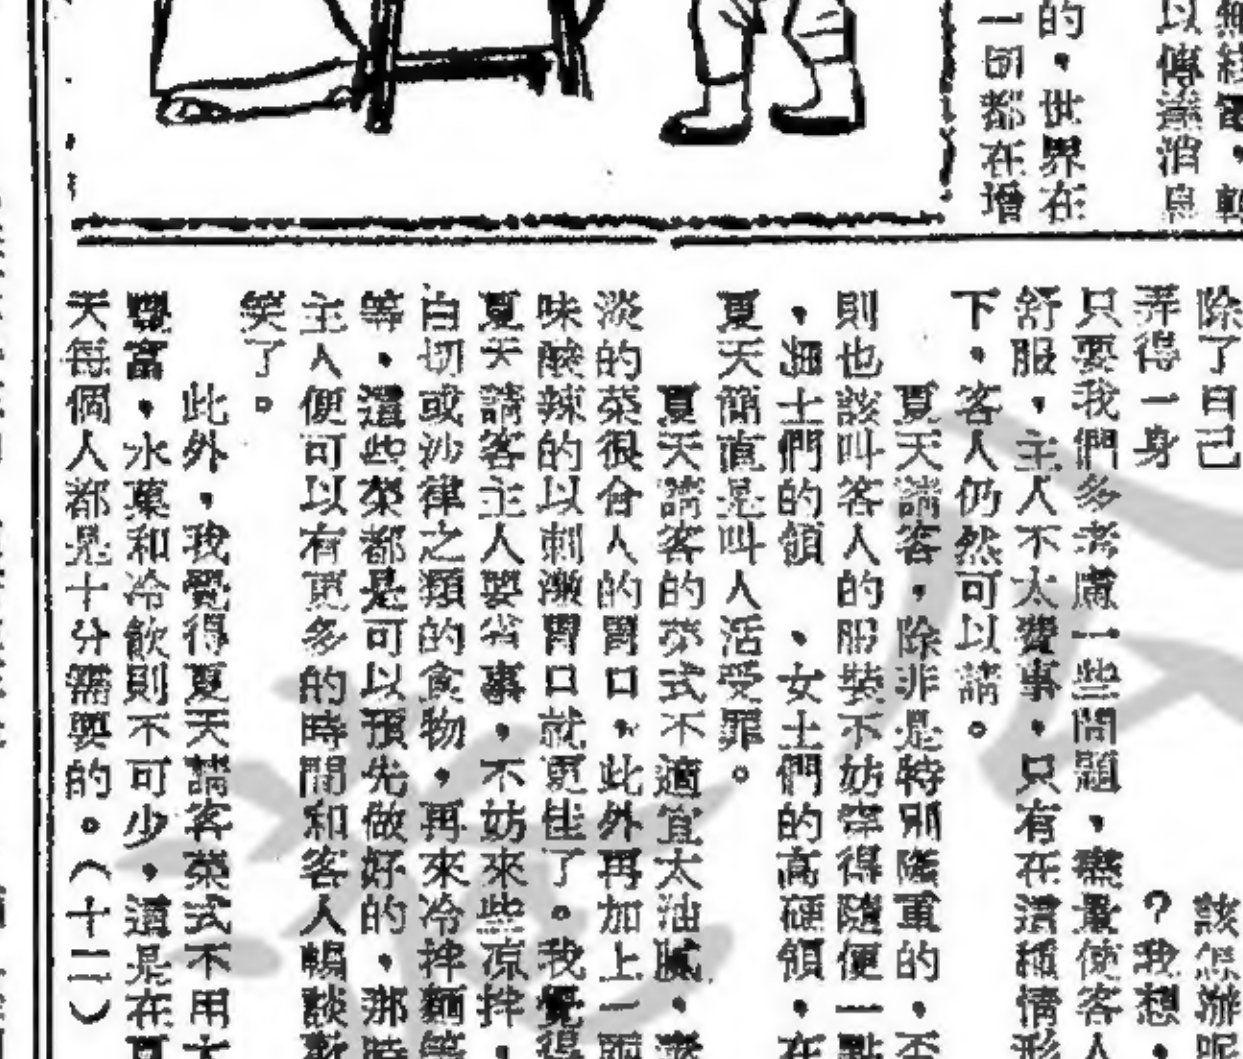 以傳達消息
的，世界在
一切都在增
除了自己　該怎辦呢
弄得一身　？我想，
只要我們多考慮一些問題，儘量使客人
舒服，主人不太費事，只有在這種情形
下，客人仍然可以請。
夏天請客，除非是特別隆重的，否
則也該叫客人的服裝不妨穿得隨便一點
，紳士們的領　，女士們的高硬領，在
夏天簡直是叫人活受罪。
夏天請客的菜式不適宜太油膩，
淡的菜很合人的胃口，此外再加上一兩
味酸辣的以刺激胃口就更佳了。我覺得
夏天請客主人要省事，不妨來些凉拌，
白切或沙律之類的食物，再來冷拌麵等
等，這些菜都是可以預先做好的，那時
主人便可以有更多的時間和客人暢談歡
笑了。
此外，我覺得夏天請客菜式不用太
豐富，水菓和冷飲則不可少，這是在夏
天每個人都是十分需要的。（十二）